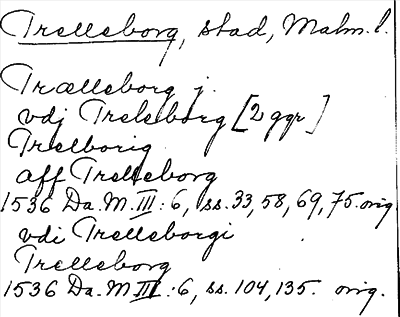 Trelleborg, stad, Malm. l.
Trælleborg j.
vdj Treleborg [2 ggr]
Trelborig
aff Trelleborg
1536 Da. M. III: 6, ss. 33, 58, 69, 75. orig.
vdi Trelleborgi
Trelleborg
1536 Da. M III: 6, ss. 104, 135. orig.